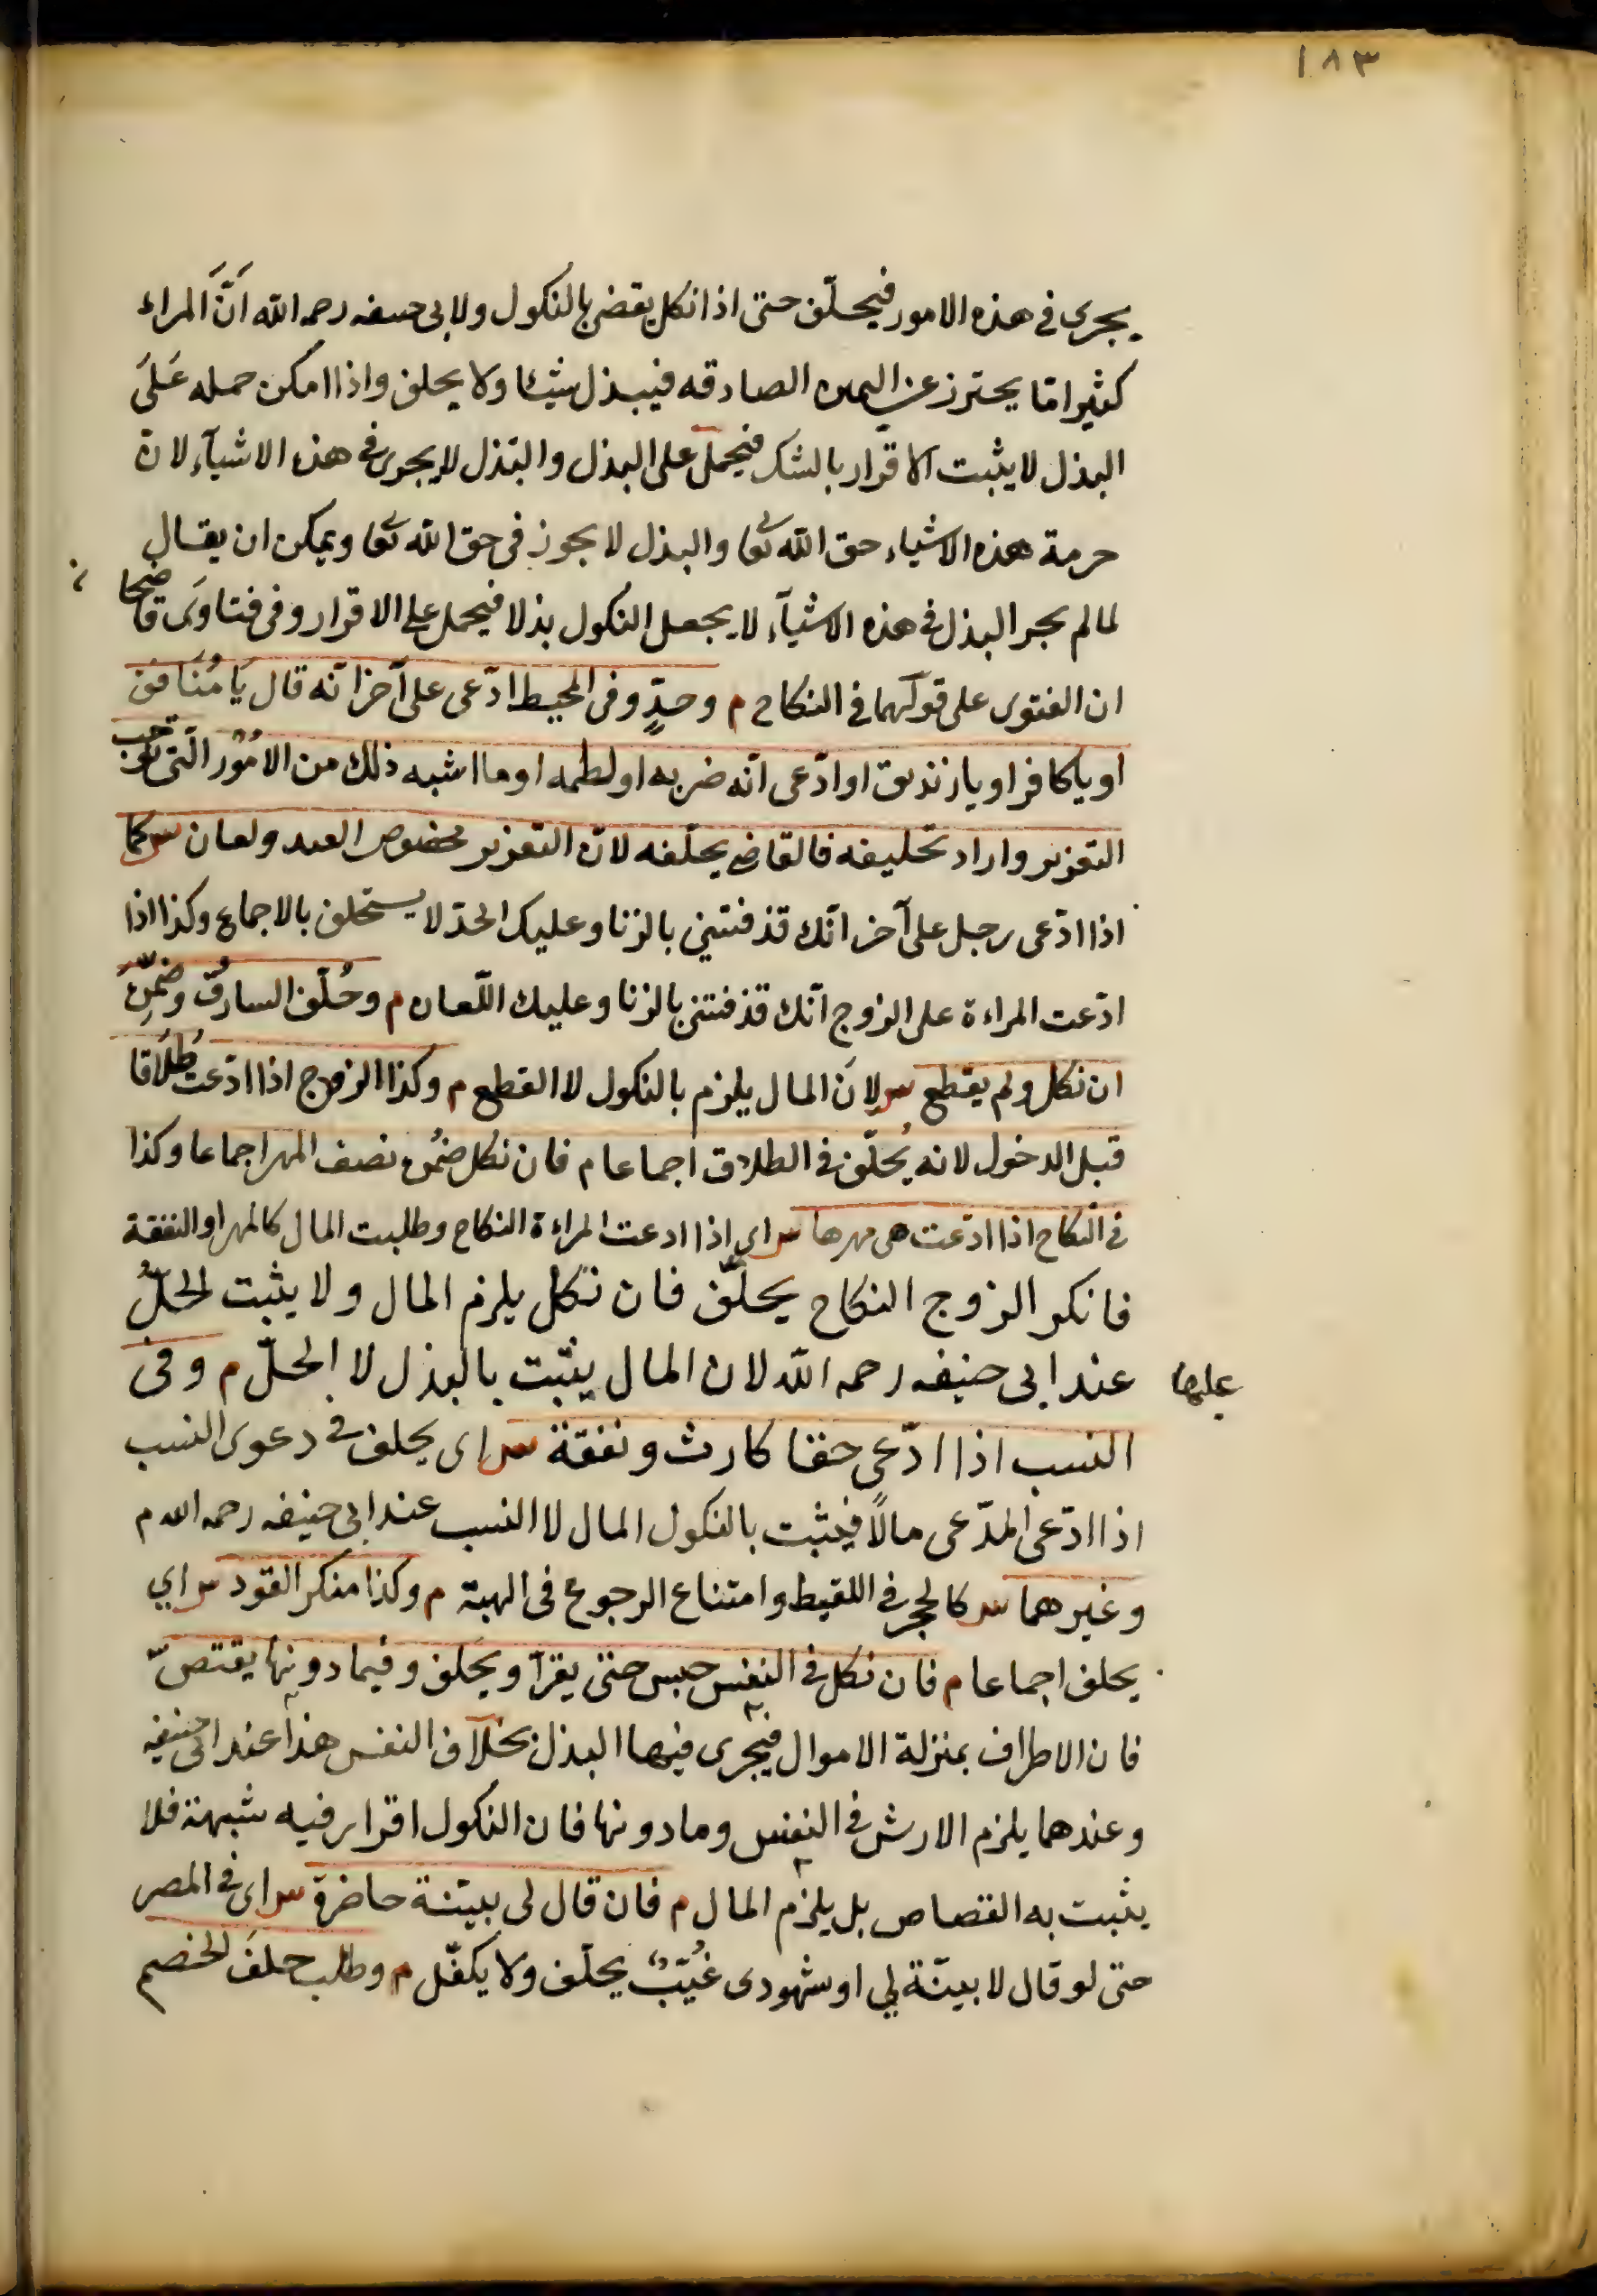 ١٨٣
يجرى فى هذه الامور فيحلّف حتى اذا نكل يقضى بالنكول ولابى حنيفه رحمه الله انَّ المراء
كثيرا ما يحترز عن اليمين الصادقه فيبذل شيئا ولا يحلف واذا امكن حمله عَلَى
البذل لا يثبت الاقرار بالشك فيحمل على البذل والبذل لا يجرى فى هذه الاشيآء لان
حرمة هذه الاشياء حق الله تعا والبذل لا يجوز فى حق الله تعا ويمكن ان يقال
لما لم يجر البذل فى هذه الاشيآء لا يجعل النكول بذلا فيحمل على الاقرار وفى فتاوَى قاضيخا ن
ان الفتوى على قولهما فى النكاح م وحدٍّ وفى المحيط ادّعى على آخر انّه قال يَا مُنَافق
او يا كافر او يا زنديق او ادّعى انّه ضربه او لطمه او ما اشبه ذلك من الامُوْر الّتى توجب
التعزير واراد تحليفه فالقاضى يحلّفه لانّ التعزير محض حق العبد ولعان س كما
اذا ادّعى رجل على آخر انّك قذفتنى بالزنا وعليك الحدّ لا يستحلف بالاجماع وكذا اذا
ادّعت المراءة على الزوج انّك قذفتنى بالزنا وعليك اللّعان م وحُلّف السارقُ وضمّن
ان نكل ولم يقطع س لانَ المال يلزم بالنكول لا القطع م وكذا الزوج اذا ادّعت طَلَاقا
قبل الدخول لانه يُحلّف فى الطلاق اجماعا م فان نكل ضمُن نصف المهر اجماعا وكذا
فى النكاح اذا ادّعت هى مهرها س اى اذا ادعت المراءة النكاح وطلبت المال كالمهر او النفقة
فانكر الزوج النكاح يحلّف فان نكل يلزم المال ولا يثبت الحلُّ
عند ابى حنيفه رحمه الله لان المال يثبت بالبذل لا الحلّ م وفى
عليها
النسب اذا ادّعى حقا كارث ونفقة س اى يحلف فى دعوى النسب
اذا ادّعى المدّعى مالًا فيثبت بالنكول المال لا النسب عند ابى حنيفه رحمه الله م
وغيرهما س كالحجر فى اللقيط وامتناع الرجوع فى الهبة م وكذا منكر القود س اي
يحلف اجماعا م فان نكل فى النفس حبس حتى يقرّ او يحلف وفيما دونها يقتصّ
فان الاطراف بمنزلة الاموال فيجرى فيها البذل بخلاف النفس هذا عند ابى حنيفه
وعندهما يلزم الارش فى النفس وما دونها فان النكول اقرار فيه شبهة فلا
يثبت به القصاص بل يلزم المال م فان قال لى بيّنة حاضرة س اى فى المصر
حتى لو قال لا بيّنة لي او شهودى غُيّبٌ يحلّف ولا يكفّل م وطلب حلفَ الخصم